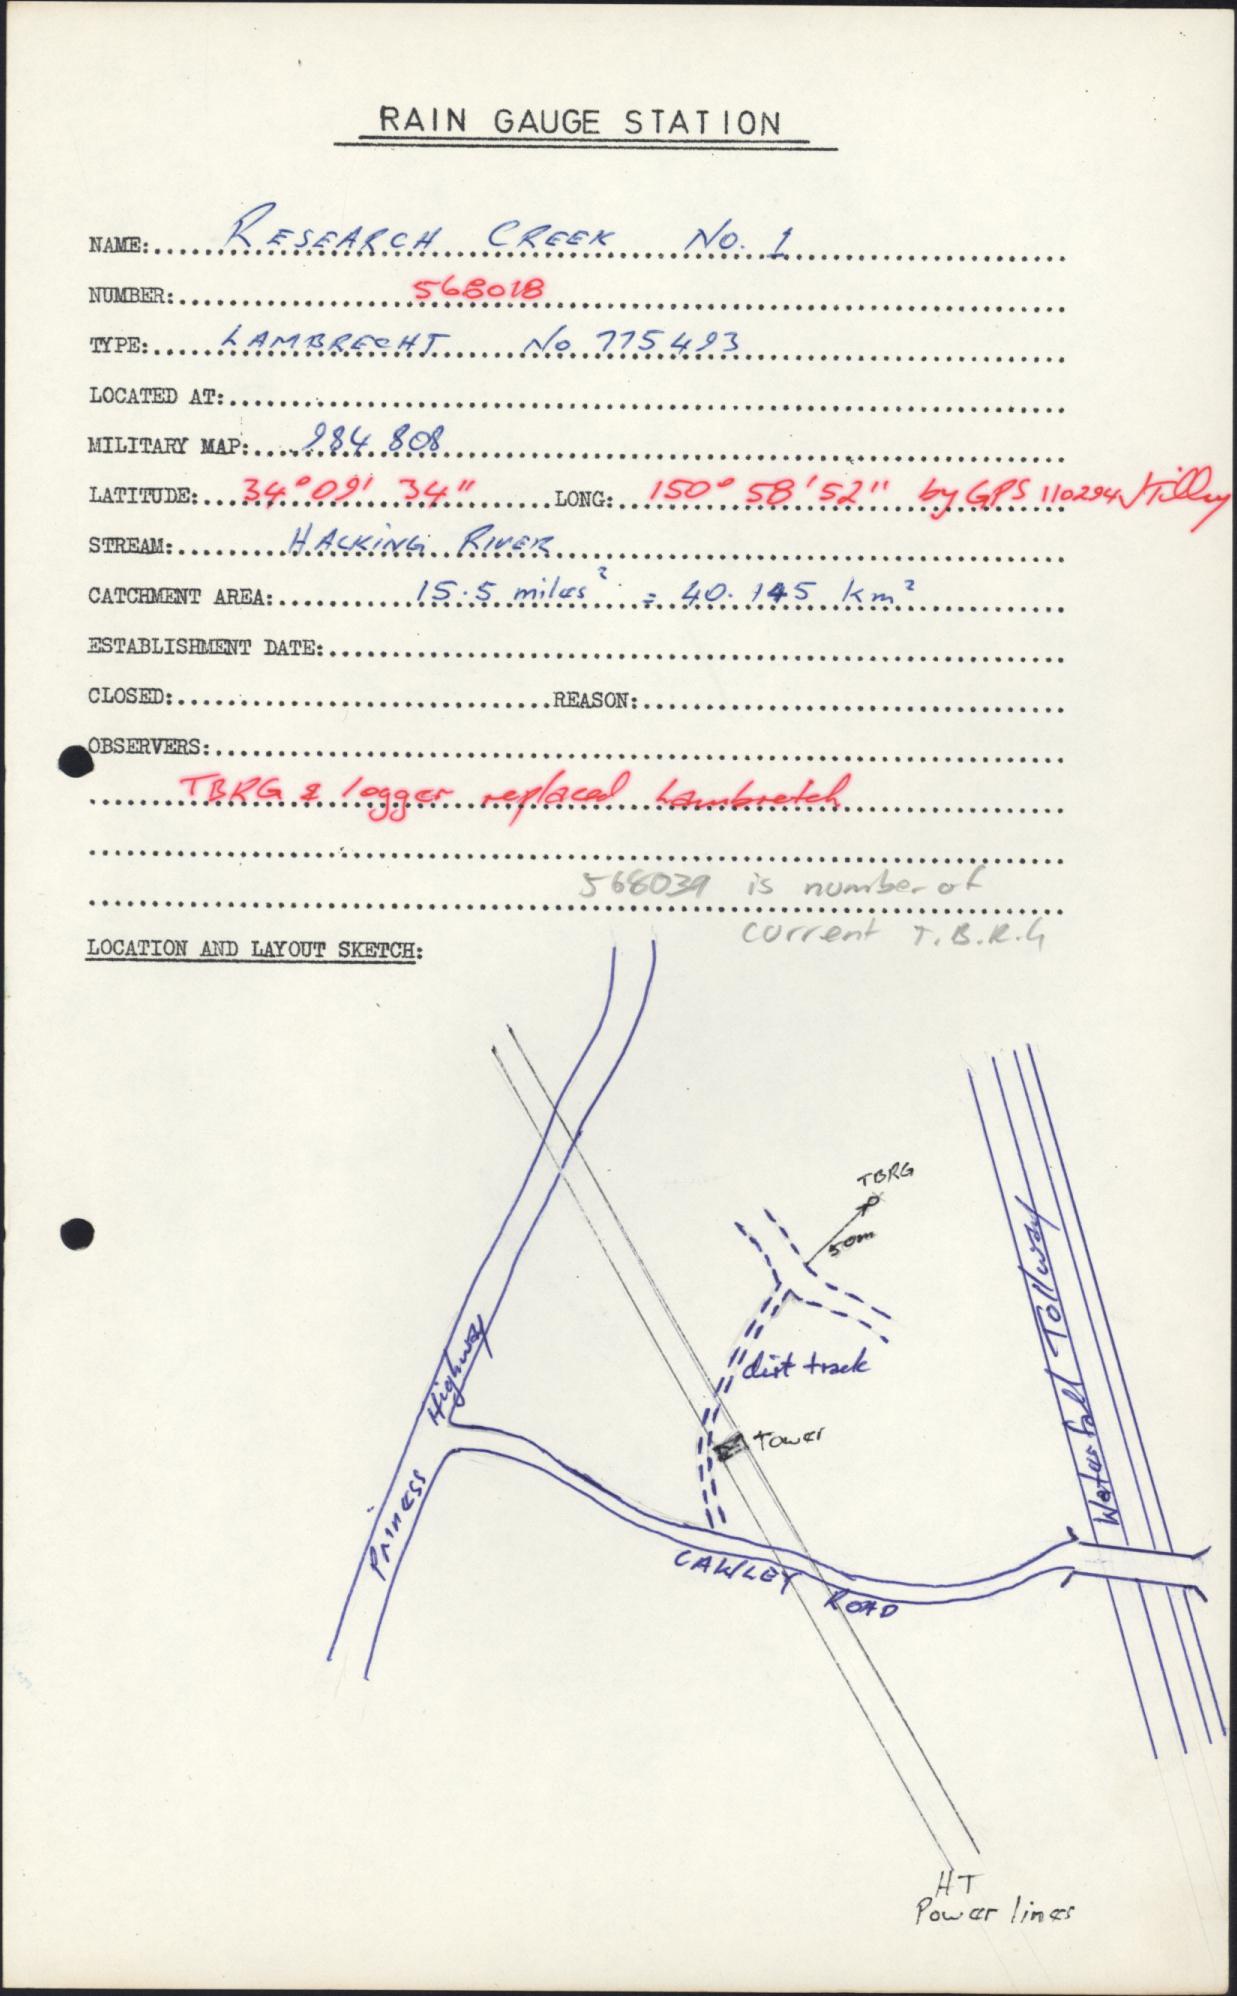 RAIN GAUGE STATION
NAME: RESEARCH CREEK No. 1
NUMBER: 568018
TYPE: LAMBRECHT No 775493
LOCATED AT:
MILITARY MAP: 984 808
LATITUDE: 34° 09' 34" LONG: 150° 58' 52" by GPS 110294
STREAM: HACKING RIVER
CATCHMENT AREA: 15.5 miles² = 40.145 km²
ESTABLISHMENT DATE:
CLOSED: REASON:
OBSERVERS:
TBRG & logger replaced Lambretch
568039 is number of
current T.B.R.G
LOCATION AND LAYOUT SKETCH:
TBRG
50m
dirt track
Tower
Princess Highway
Waterfall Tollway
CAWLEY ROAD
HT
Power lines